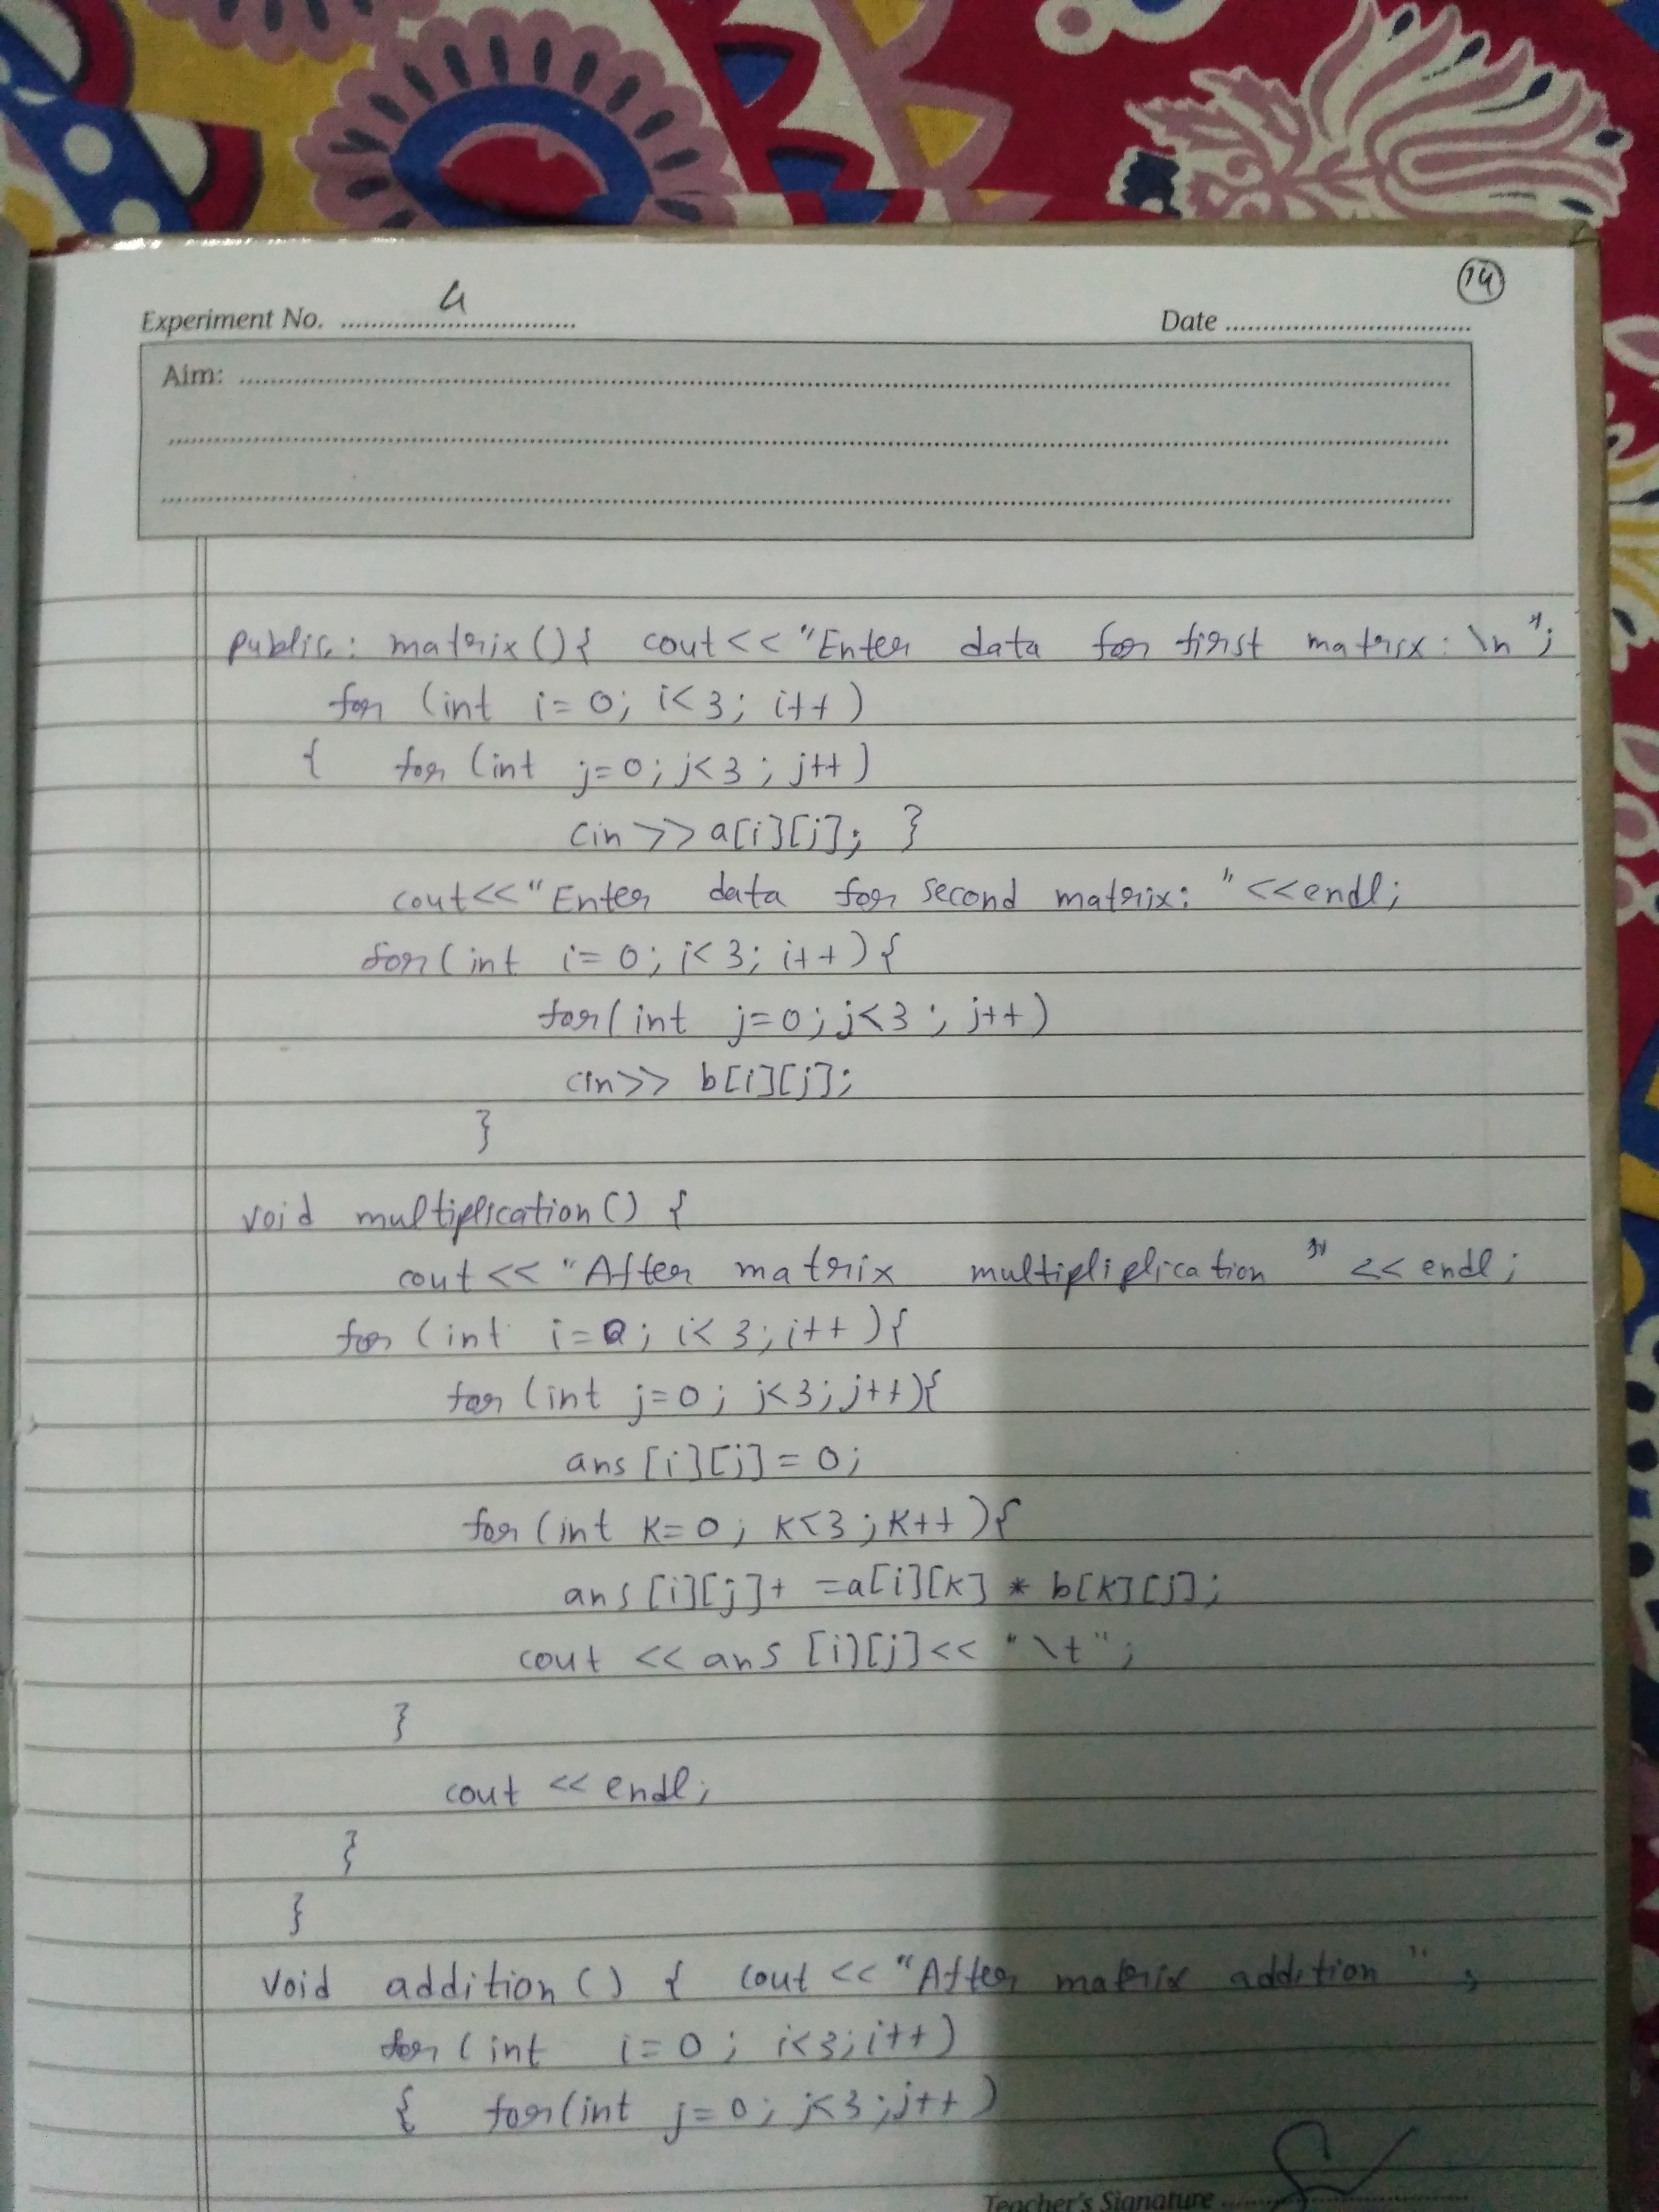 14
Experiment No. 4
Date
Aim:
public: matrix(){ cout<<"Enter data for first matrix: \n";
for (int i=0; i<3; i++)
{ for (int j=0; j<3; j++)
cin >> a[i][j]; }
cout<<"Enter data for second matrix: "<<endl;
for(int i=0; i<3; i++){
for(int j=0; j<3; j++)
cin>> b[i][j];
}
void multiplication() {
cout << "After matrix multipliplication" << endl;
for (int i=0; i<3; i++){
for (int j=0; j<3; j++){
ans [i][j] = 0;
for (int k=0; k<3; k++){
ans [i][j]+ =a[i][k] * b[k][j];
cout << ans [i][j] << "\t";
}
cout << endl;
}
}
void addition() { cout << "After matrix addition";
for (int i=0; i<3; i++)
{ for(int j=0; j<3; j++)
Teacher's Signature